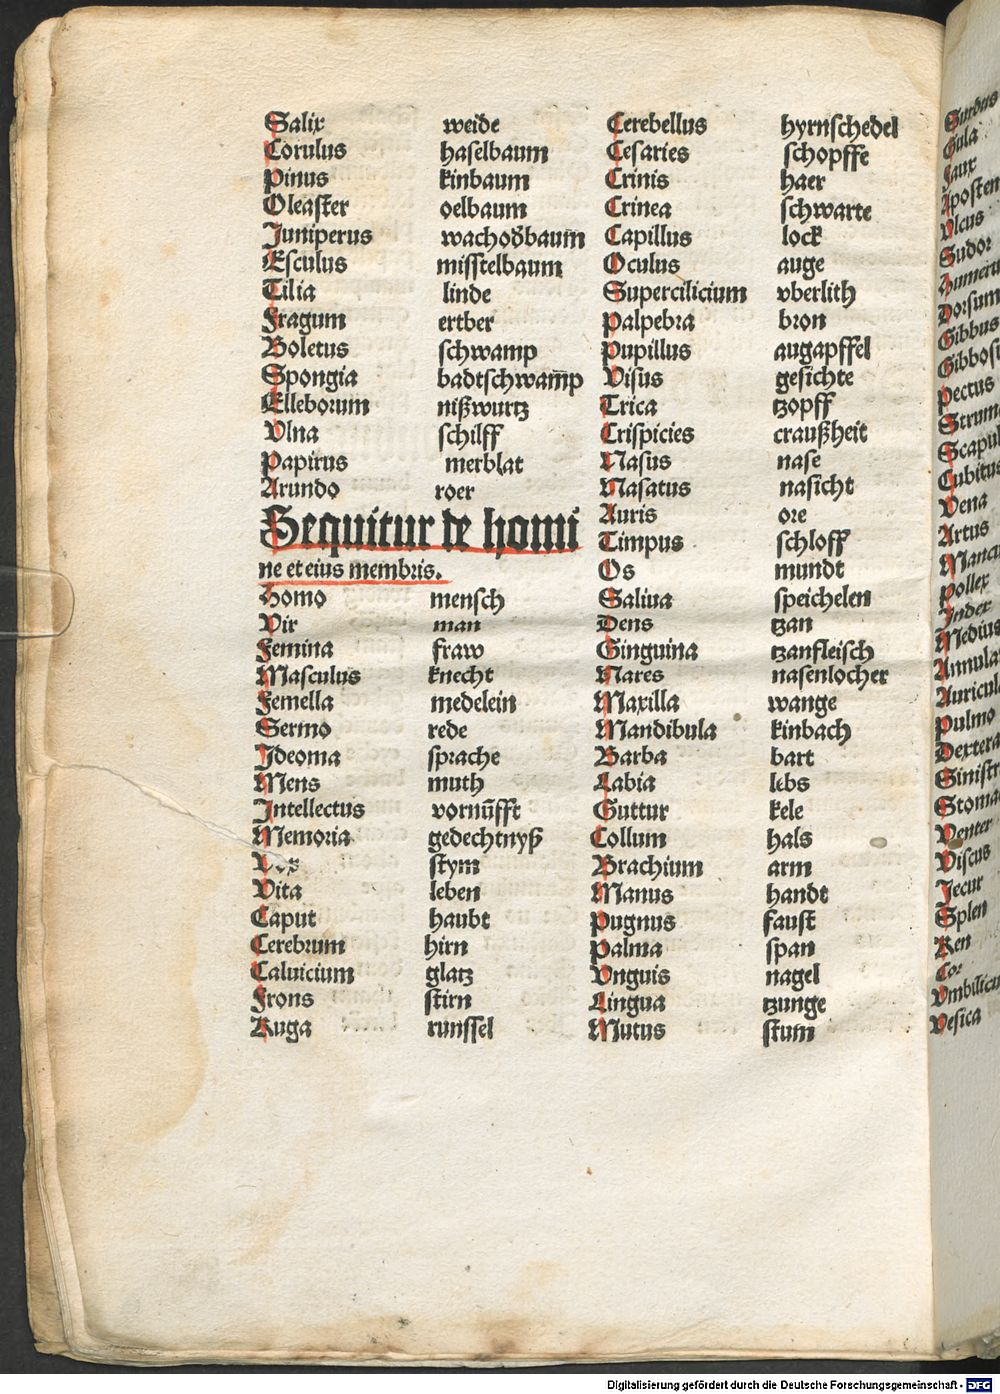 Salix weide
Corulus haselbaum
Pinus kinbaum
Oleaster oelbaum
Juniperus wachoďbaum
Esculus misstelbaum
Tilia linde
Fragum ertber
Boletus schwamp
Spongia badtschwam̄p
Elleborum nißwurtz
Vlna schilff
Papirus merblat
Arundo roer
Sequitur de homi
ne et eius membris.
Homo mensch
Vir man
Femina fraw
Masculus knecht
Femella medelein
Sermo rede
Jdeoma sprache
Mens muth
Jntellectus vornūfft
Memoria gedechtnyß
Vox stym
Vita leben
Caput haubt
Cerebrum hirn
Caluicium glatz
Frons stirn
Ruga runssel
Cerebellus hyrnschedel
Cesaries schopffe
Crinis haer
Crinea schwarte
Capillus lock
Oculus auge
Supercilicium vberlith
Palpebra bron
Pupillus augapffel
Visus gesichte
Trica tzopff
Crispicies craußheit
Nasus nase
Nasatus nasicht
Auris ore
Timpus schloff
Os mundt
Saliua speichelen
Dens tzan
Ginguina tzanfleisch
Nares nasenlocher
Maxilla wange
Mandibula kinbach
Barba bart
Labia lebs
Guttur kele
Collum hals
Brachium arm
Manus handt
Pugnus faust
Palma span
Vnguis nagel
Lingua tzunge
Mutus stum
Surdus
Gula
Faux
Apostem
Vlcus
Sudor
Humeru
Dorsum
Gibbus
Gibbosu
Pectus
Strum
Scapul
Cubitus
Vena
Artus
Mancu
Pollex
Jndex
Medius
Annula
Auricula
Pulmo
Dextera
Sinistr
Stoma
Venter
Viscus
Jecur
Splen
Ren
Cor
Vmbilicu
Vesica
Digitalisierung gefördert durch die Deutsche Forschungsgemeinschaft - DFG